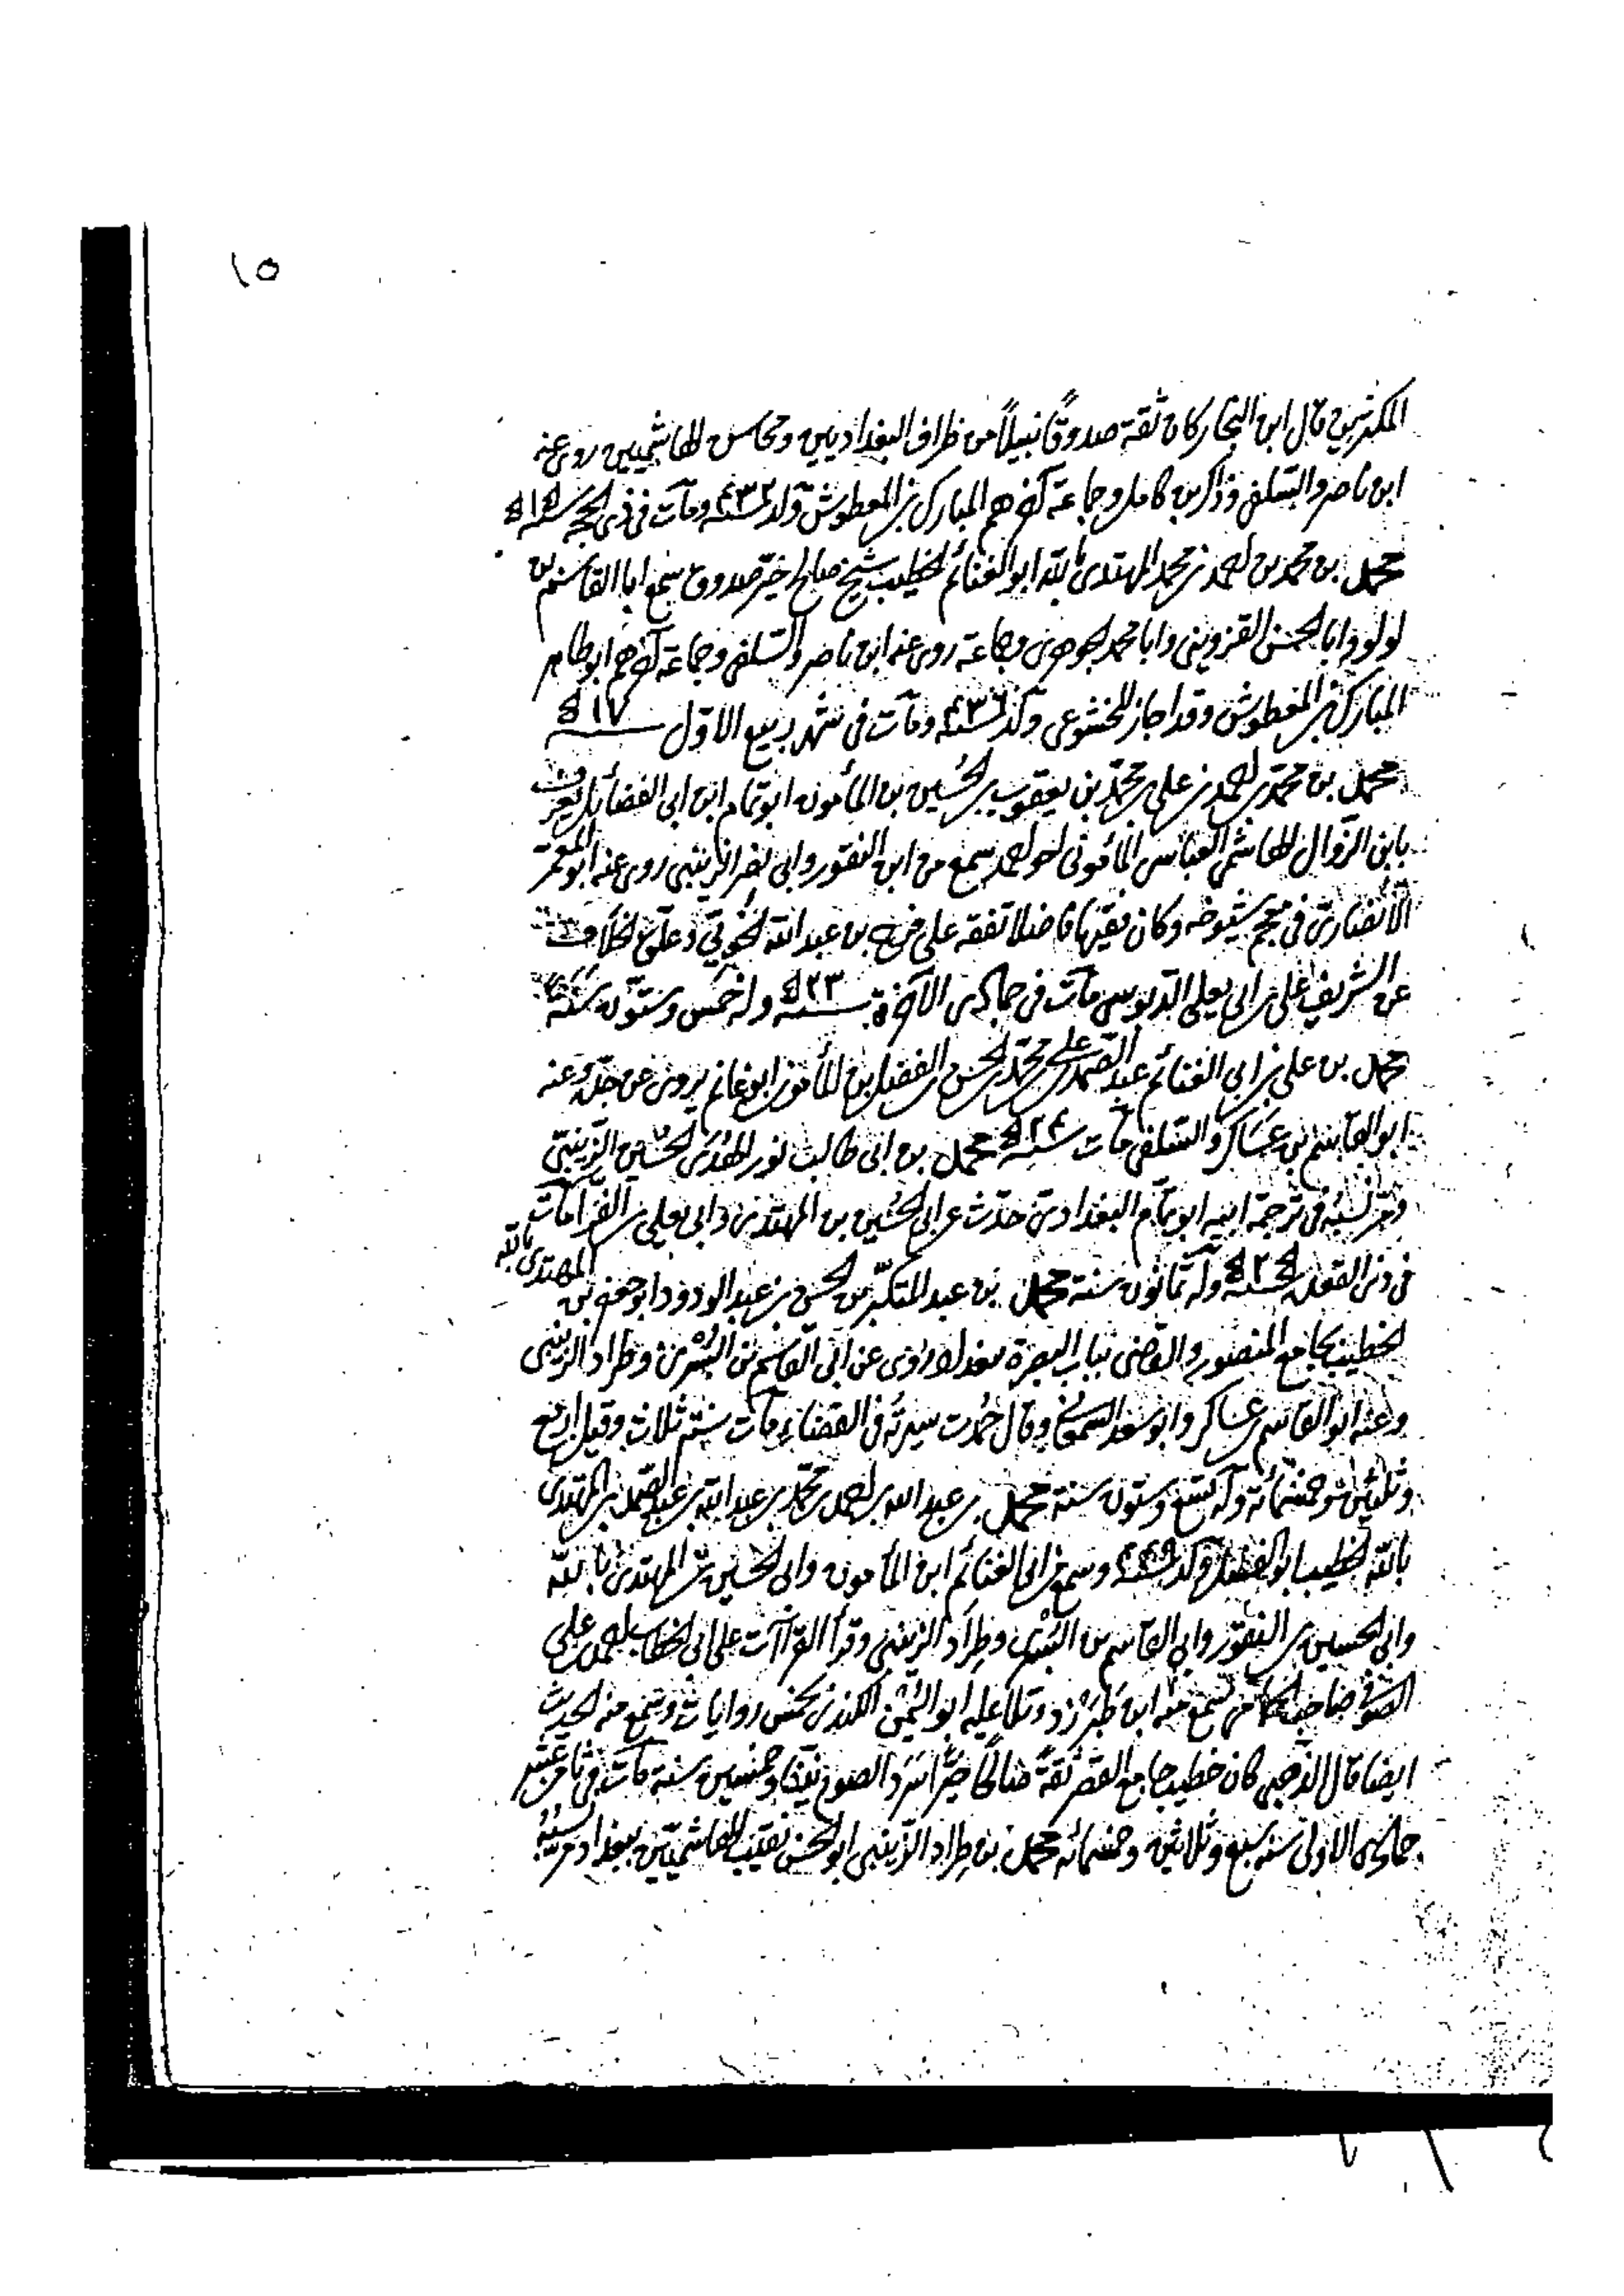 ١٥
المكثرين قال ابن النجار كان ثقة صدوقًا نبيلًا من ظراف البغداديين ومحاسن الهاشميين روى عنه
ابن ناصر والسلفي وذاكر بن كامل وجماعة آخرهم المبارك بن المعطوش ولد سنة ٤٣٢ ومات في ذي الحجة سنة ٥١٥
محمد بن محمد بن احمد بن محمد المهتدى بالله ابو الغنائم الخطيب شيخ صالح خير صدوق سمع ابا القاسم بن
لولو وابا الحسن القزويني وابا محمد الجوهري وجماعة روى عنه ابن ناصر والسلفي وجماعة آخرهم ابو طاهر
المبارك بن المعطوش وقد اجاز للخشوعي ولد سنة ٤٣٦ ومات في شهر ربيع الاول سنة ٥١٧
محمد بن محمد بن احمد بن علي بن محمد بن يعقوب بن الحسين بن المأمون ابو تمام ابن ابى الفضائل يعرف
بابن الزوال الهاشمي العباسي المأموني اخو احمد سمع من ابن النقور وابى نصر الزينبي روى عنه ابو المعمر
الأنصاري في معجم شيوخه وكان فقيها فاضلا تفقه على فرج بن عبد الله الخوئي وعلق الخلاف
عن الشريف علي بن ابى يعلى الدبوسي مات في جمادى الآخرة سنة ٥٢٣ وله خمس وستون سنة
محمد بن علي بن ابي الغنائم عبد الصمد بن علي بن محمد بن الحسن بن الفضل بن المأمون ابو غانم يروى عن جده وعنه
ابو القاسم بن عساكر والسلفي مات سنة ٥٢٤ محمد بن ابى طالب نور الهدى الحسين الزينبي
ومر نسبه في ترجمة ابيه ابو تمام البغدادي حدث عن ابى الحسين بن المهتدى وابى يعلى بن الفراء مات
في ذى القعدة سنة ٥٢٥ وله ثمانون سنة محمد بن عبد المتكبر بن الحسن بن عبد الودود ابو جعفر بن المهتدى بالله
الخطيب بجامع المنصور والقاضى بباب البصرة ببغداد روى عن ابى القاسم بن البسري وطراد الزينبي
وعنه ابو القاسم بن عساكر وابو سعد السمعاني وقال حمدت سيرته في القضاء مات سنة ثلاث وقيل اربع
وثلثين وخمسمائة وله تسع وستون سنة محمد بن عبد الله بن احمد بن محمد بن عبد الله بن عبد الصمد بن المهتدى
بالله الخطيب ابو الفضل ولد سنة ٤٤٩ وسمع من ابى الغنائم ابن المأمون وابى الحسين بن المهتدى بالله
وابى الحسين بن النقور وابى القاسم بن البسري وطراد الزينبي وقرأ القراآت على ابى الخطاب احمد بن علي
الصوفي صاحب الحمامي سمع منه ابن طبرزد وتلا عليه ابو اليمن الكندي بخمس روايات وسمع منه الحديث
ايضا قال الذهبي كان خطيب جامع القصر ثقةً صالحًا خيرًا سرد الصوم نيفا وخمسين سنة مات في ثامن عشر
جمادى الاولى سنة سبع وثلاثين وخمسمائه محمد بن طراد الزينبي ابو الحسن نقيب الهاشميين ببغداد مر نسبه